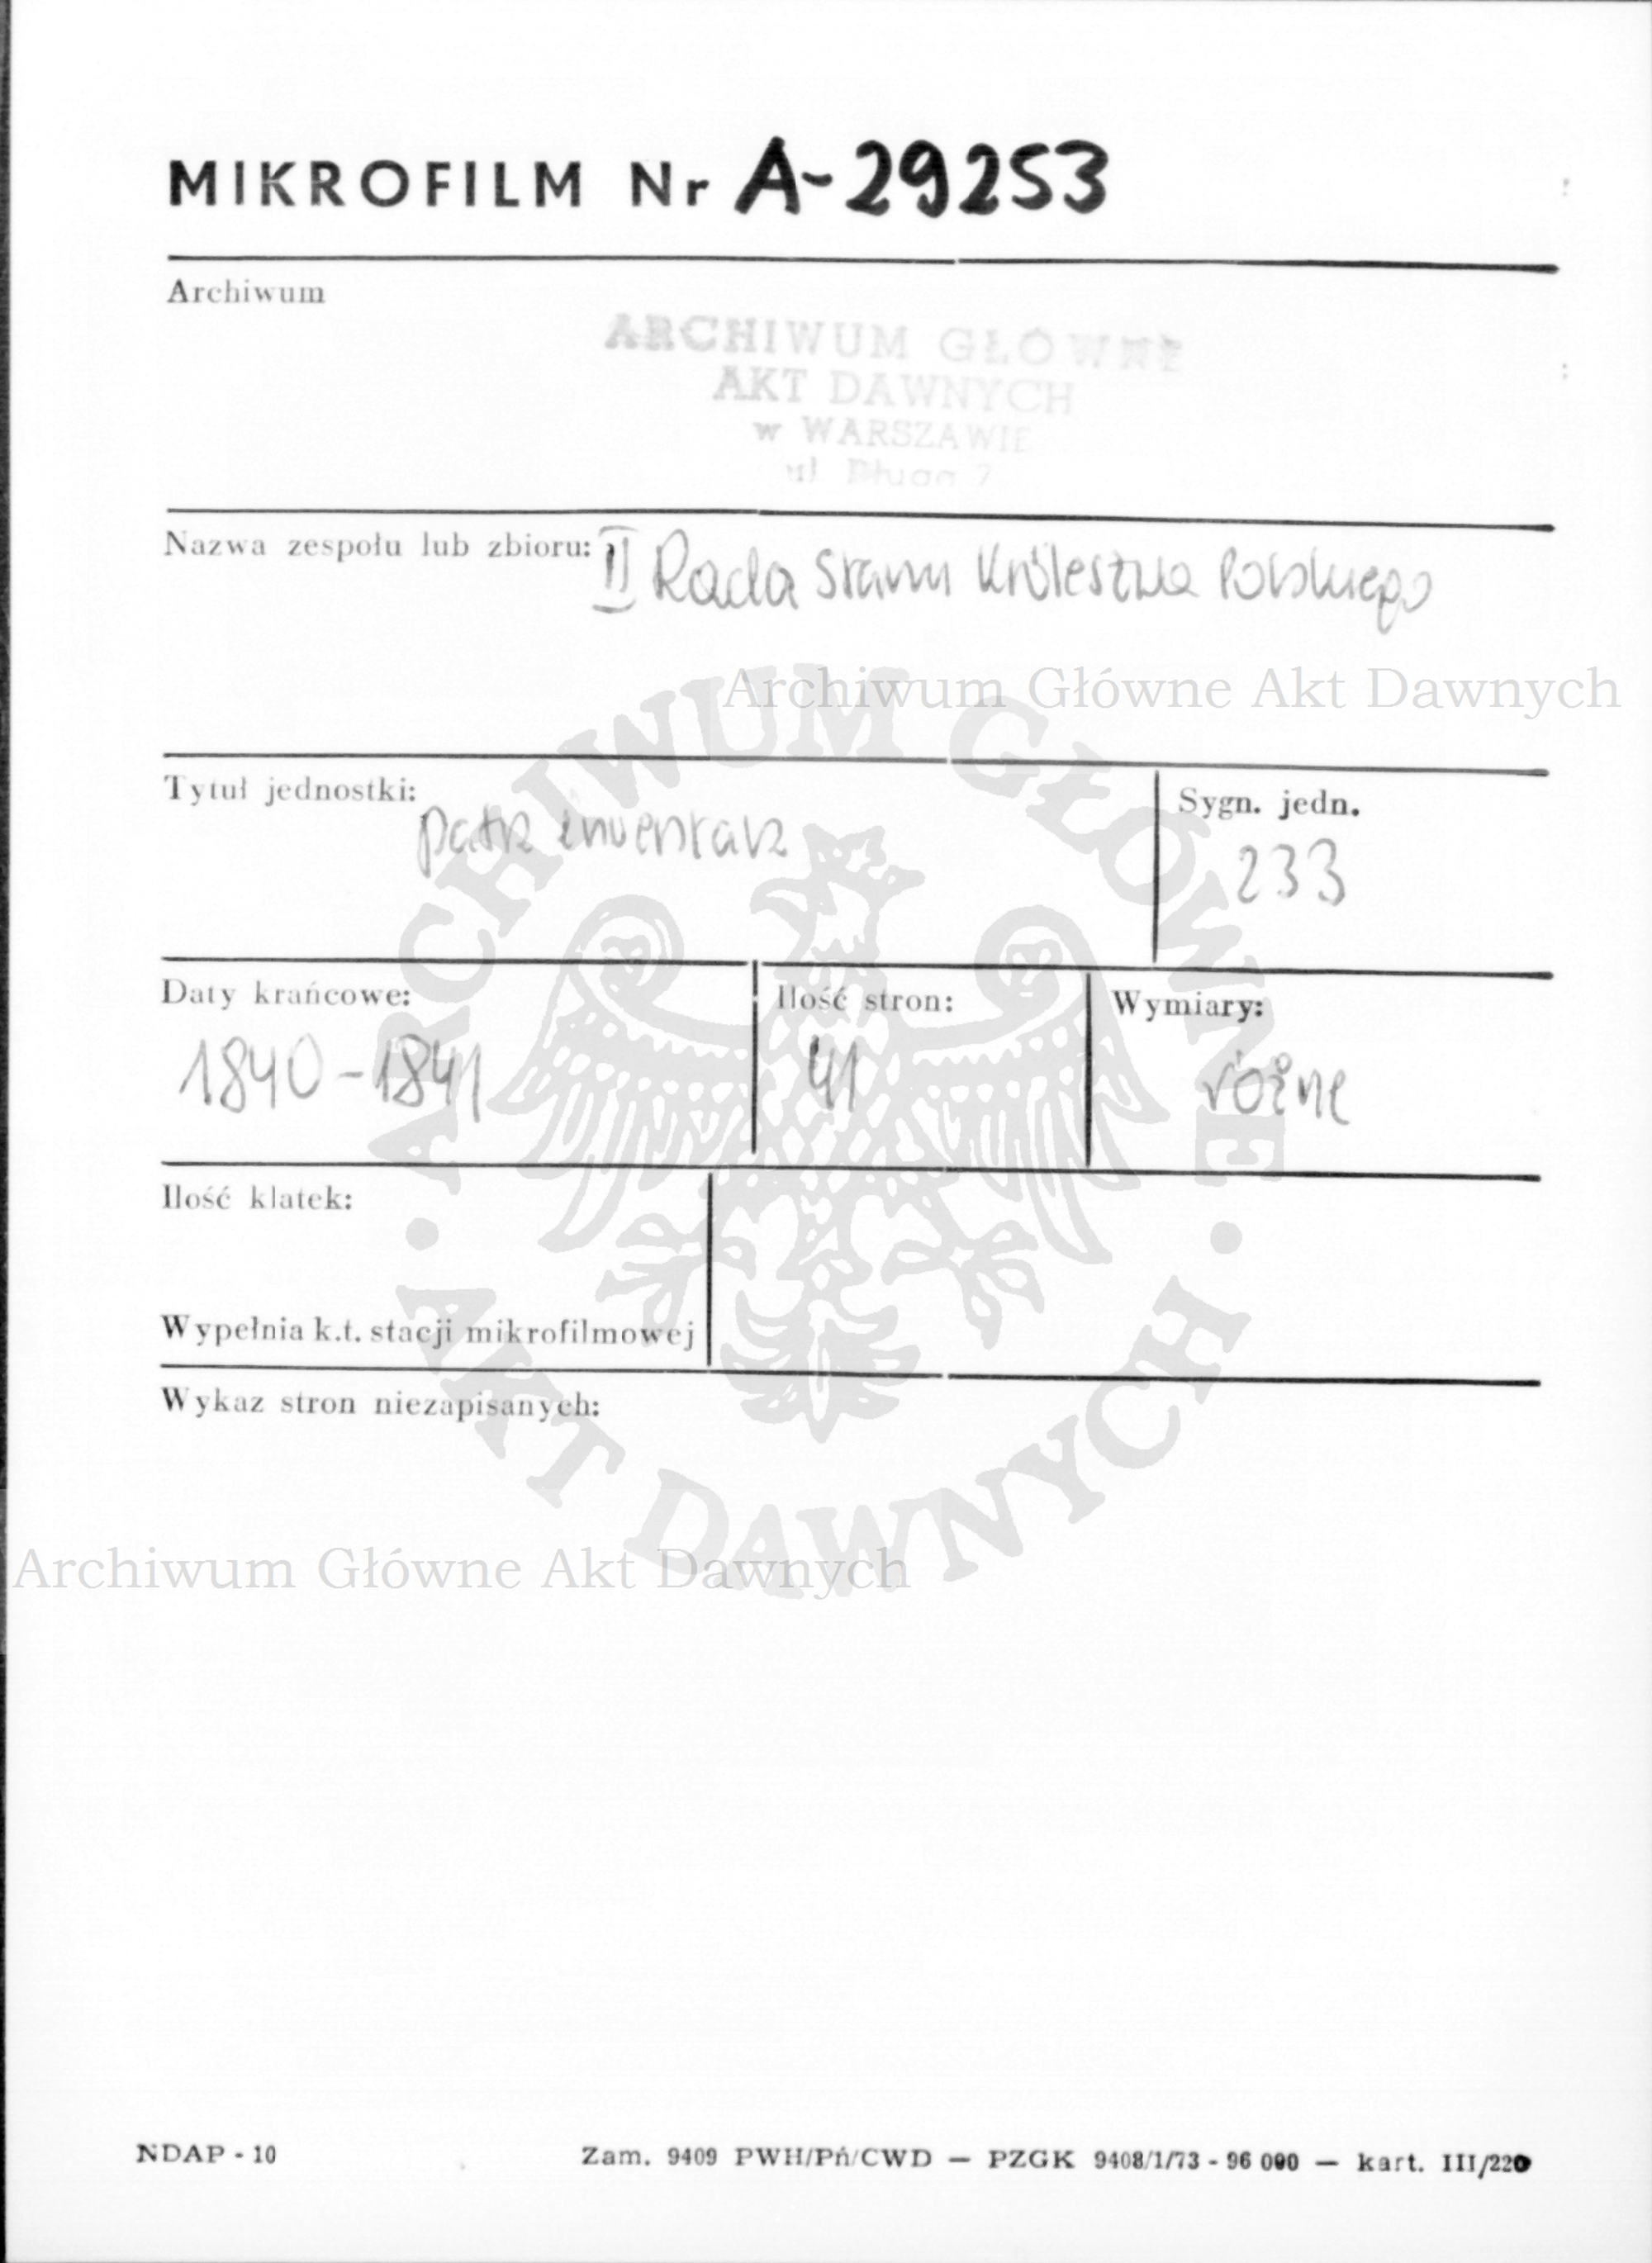 MIKROFILM Nr A-29253
Archiwum
ARCHIWUM GŁÓWNE
AKT DAWNYCH
w WARSZAWIE
ul. Długa 7
Nazwa zespołu lub zbioru: II Rada Stanu Królestwa Polskiego
Archiwum Główne Akt Dawnych
ARCHIWUM GŁÓWNE
Tytuł jednostki: patrz inwentarz
Sygn. jedn.
233
Daty krańcowe:
1840-1841
Ilość stron:
41
Wymiary:
różne
Ilość klatek:
Wypełnia k.t. stacji mikrofilmowej
Wykaz stron niezapisanych:
· AKT DAWNYCH ·
Archiwum Główne Akt Dawnych
NDAP - 10
Zam. 9409 PWH/Pń/CWD — PZGK 9408/1/73 - 96 000 — kart. III/220